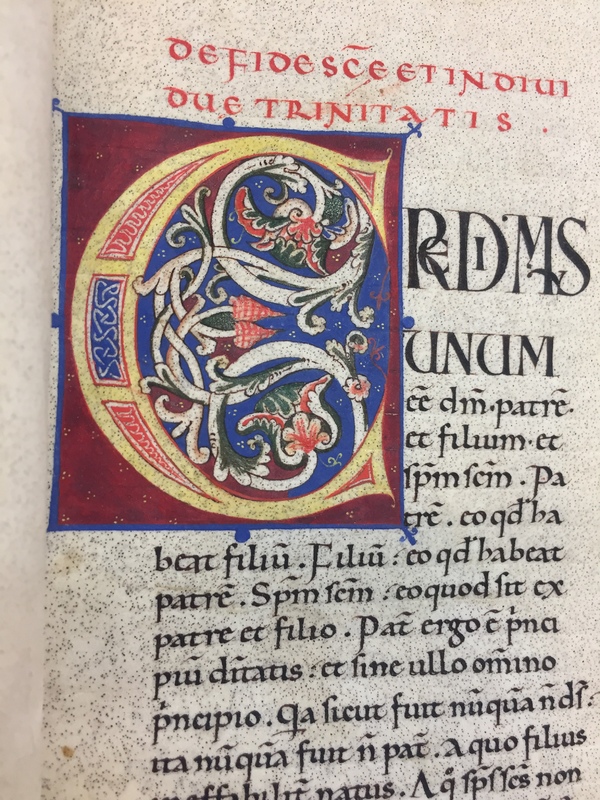 DE FIDE SC̄E ET INDIUI
DUĘ TRINITATIS .
CREDIMUS
UNUM
eē dm̄ . patrē .
et filium . et
sp̄m scm̄ . Pa
trē . eo qd̄ ha
beat filiū . Filiū : eo qd̄ habeat
patrē . Sp̄m scm̄ : eo quod sit ex
patre et filio . Pat̄ ergo ē p̍nci
piū dītatis : et sine ullo om̄ino
p̍ncipio . Q̵a sicut fuit nūquā n̄ ds̄ :
ita nūquā fuit n̄ pat̄ . A quo filius
natus . A q̊ sp̄s scs̄ non